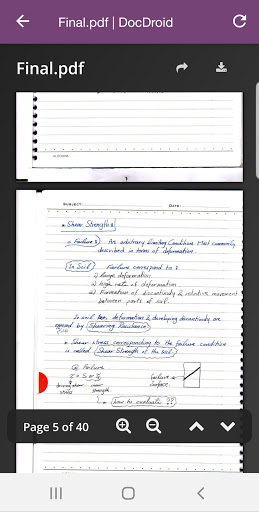 Final.pdf | DocDroid
Final.pdf
1
SUBJECT: DATE:
Shear Strength
Failure Are arbitrary limiting Conditions Most commonly
described in terms of deformation.
In Soil Failure correspond to :
i) large deformation
ii) high rate of deformation
iii) Formation of discontinuity & relative movement
between parts of soil.
In soil deformation & developing discontinuity are
opposed by (Shearing Resistance)
Shear stress corresponding to the failure condition
is called (Shear Strength of the soil)
@ Failure
τ = S or
driving shear shear
stress strength
failure
surface
how to evaluate ??
Page 5 of 40